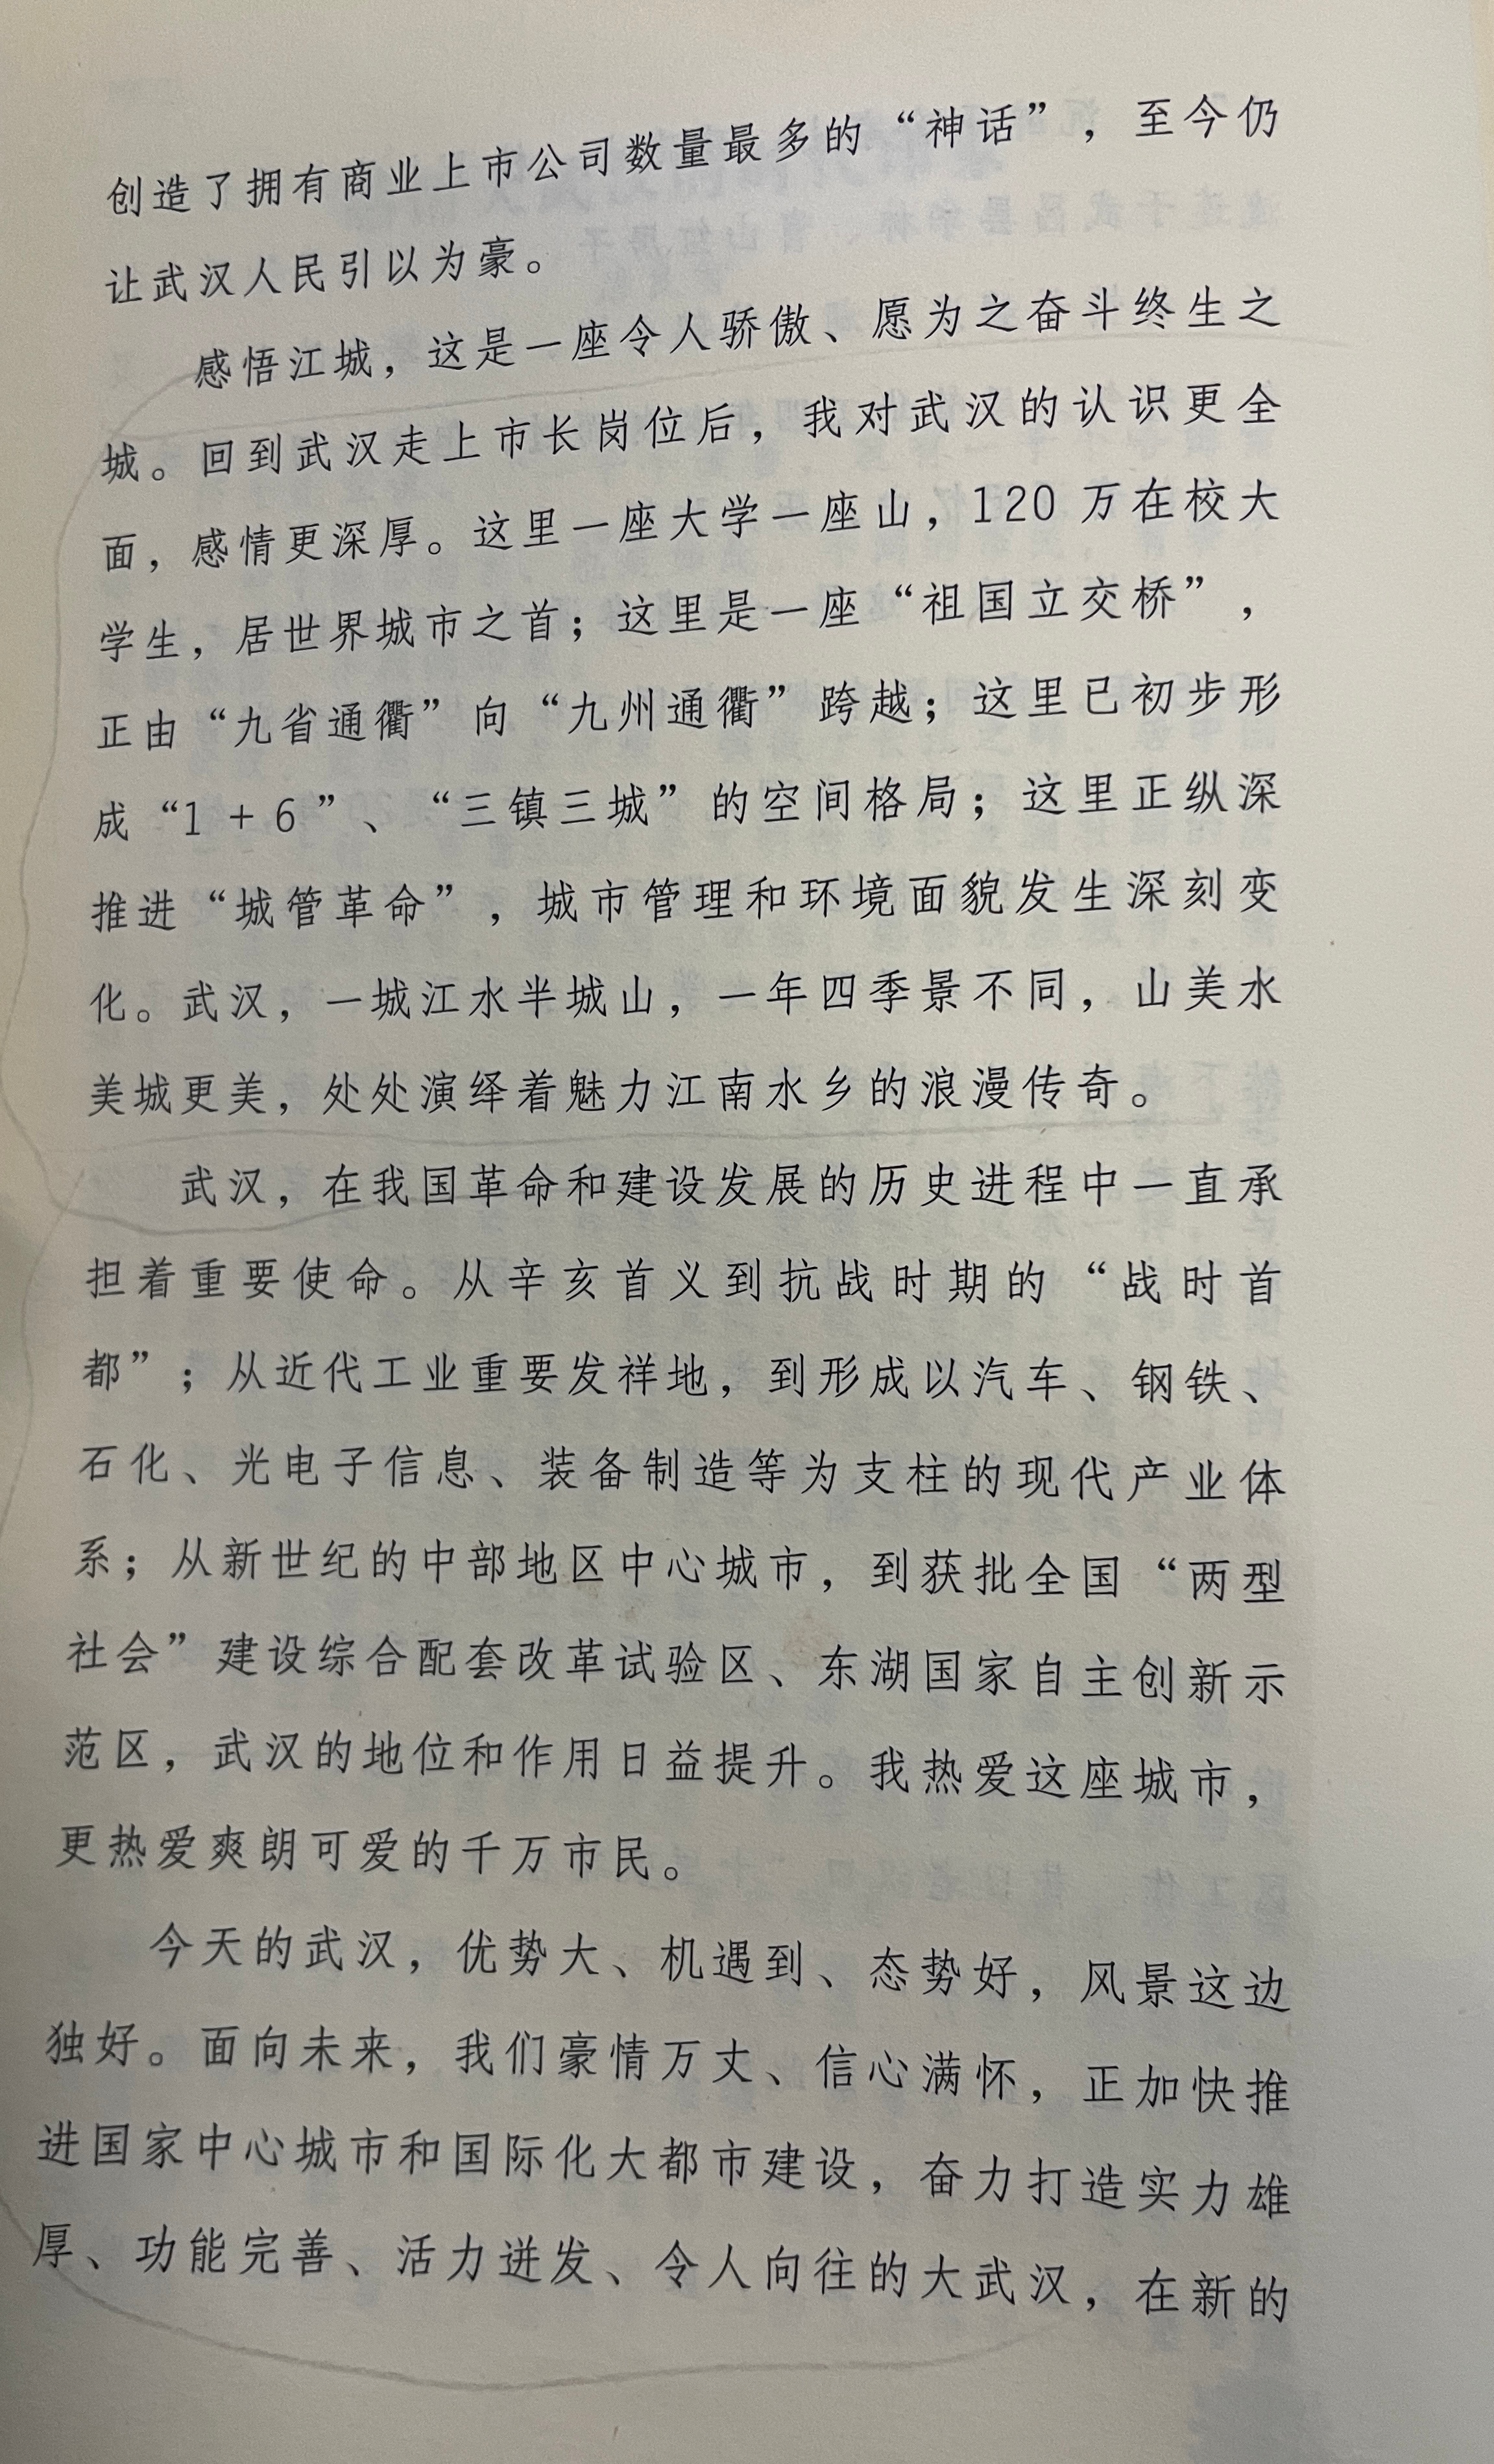 创造了拥有商业上市公司数量最多的“神话”，至今仍
让武汉人民引以为豪。
感悟江城，这是一座令人骄傲、愿为之奋斗终生之
城。回到武汉走上市长岗位后，我对武汉的认识更全
面，感情更深厚。这里一座大学一座山，120 万在校大
学生，居世界城市之首；这里是一座“祖国立交桥”，
正由“九省通衢”向“九州通衢”跨越；这里已初步形
成“1 + 6”、“三镇三城”的空间格局；这里正纵深
推进“城管革命”，城市管理和环境面貌发生深刻变
化。武汉，一城江水半城山，一年四季景不同，山美水
美城更美，处处演绎着魅力江南水乡的浪漫传奇。
武汉，在我国革命和建设发展的历史进程中一直承
担着重要使命。从辛亥首义到抗战时期的“战时首
都”；从近代工业重要发祥地，到形成以汽车、钢铁、
石化、光电子信息、装备制造等为支柱的现代产业体
系；从新世纪的中部地区中心城市，到获批全国“两型
社会”建设综合配套改革试验区、东湖国家自主创新示
范区，武汉的地位和作用日益提升。我热爱这座城市，
更热爱爽朗可爱的千万市民。
今天的武汉，优势大、机遇到、态势好，风景这边
独好。面向未来，我们豪情万丈、信心满怀，正加快推
进国家中心城市和国际化大都市建设，奋力打造实力雄
厚、功能完善、活力迸发、令人向往的大武汉，在新的